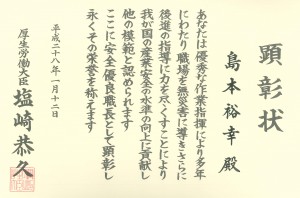 顕彰状
島本裕幸 殿
あなたは優秀な作業指揮により多年
にわたり職場を無災害に導きさらに
後進の指導に力を尽くすことにより
我が国の産業安全の水準の向上に貢献し
他の模範と認められます
ここに安全優良職長として顕彰し
永くその栄誉を称えます
平成二十八年一月十二日
厚生労働大臣 塩崎恭久